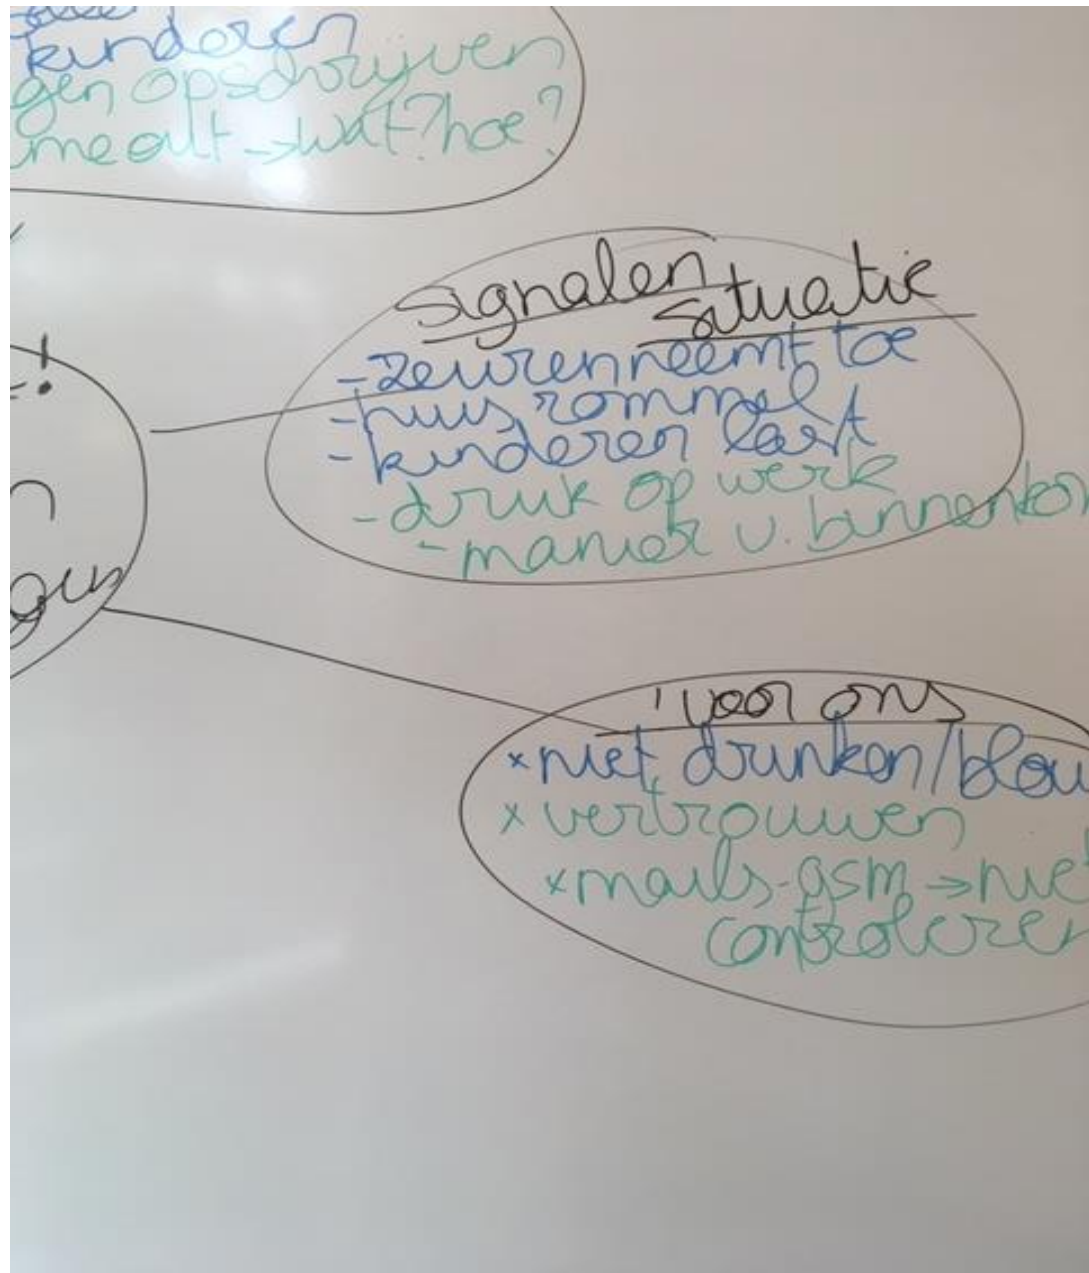 kinderen
gen opschrijven
me out → wat? hoe?
signalen
situatie
- zeuren neemt toe
- huis rommel
- kinderen last
- druk op werk
- manier v. binnenkom
! voor ons
x niet drinken/blow
x vertrouwen
x mails-gsm → niet
controleren